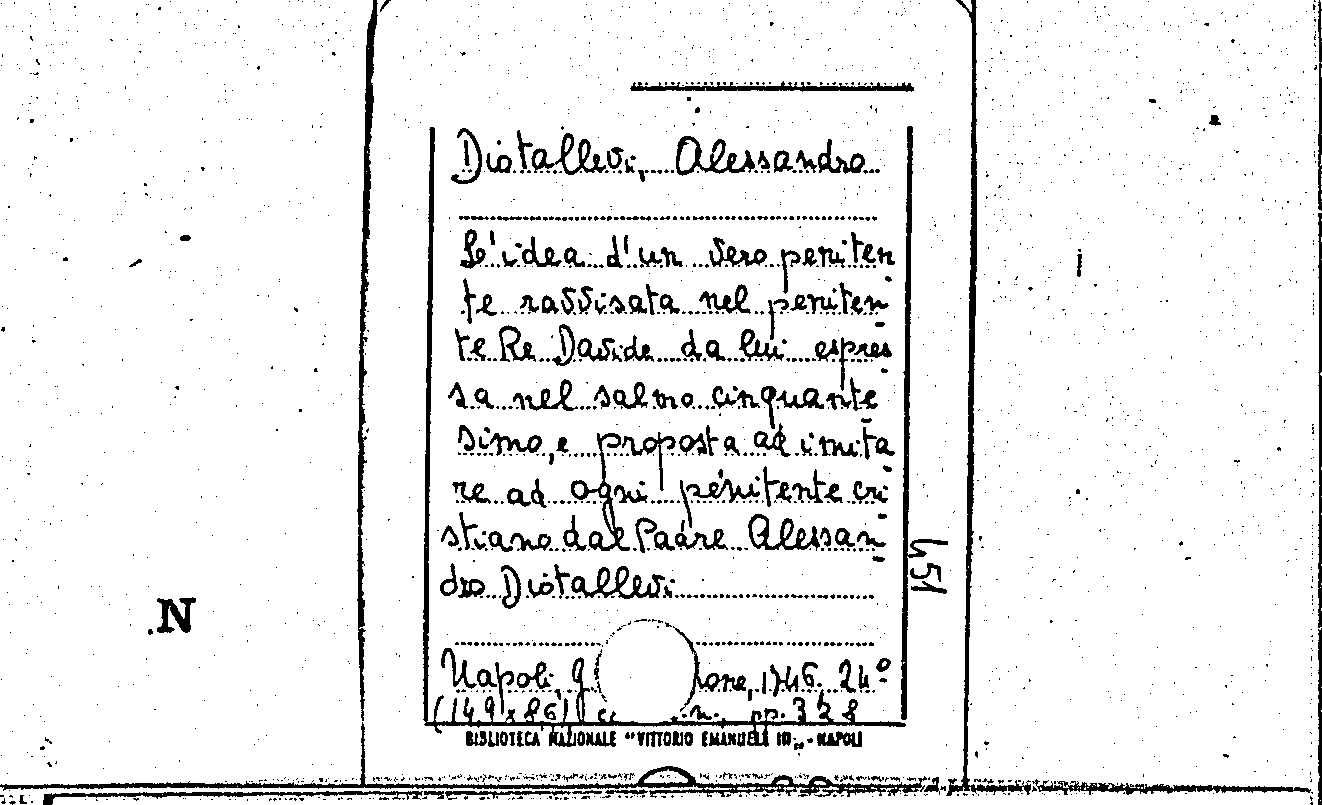 Diotallevi, Alessandro
L'idea d'un vero peniten
te ravvisata nel peniten
te Re Davide da lui espres
sa nel salmo cinquante
simo, e proposta ad imita
re ad ogni penitente cri
stiano dal Padre Alessan
dro Diotallevi
451
N
Napoli, 1746. 24º
(14,9 x 8,6) pp. 328
BIBLIOTECA NAZIONALE "VITTORIO EMANUELE III" - NAPOLI